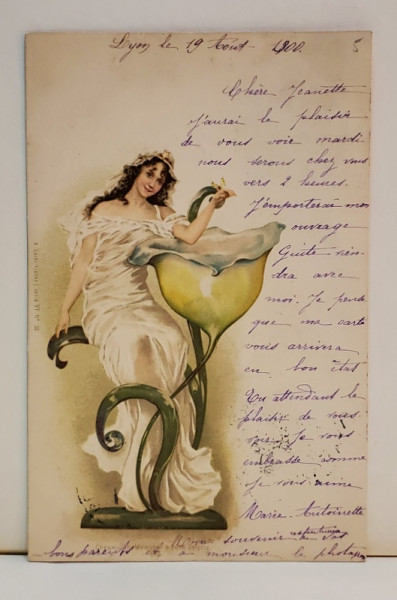 Lyon le 19 Aout 1900.
Chère Jeanette
J'aurai le plaisir
de vous voir mardi
nous serons chez vous
vers 2 heures.
J'emporterai mon
ouvrage
Guite vien-
dra avec
moi. Je pense
que ma carte
vous arrivera
en bon état
En attendant le
plaisir de vous
voir Je vous
embrasse comme
je vous aime
Marie-Antoinette
souvenir à vos
bons parents et à monsieur le